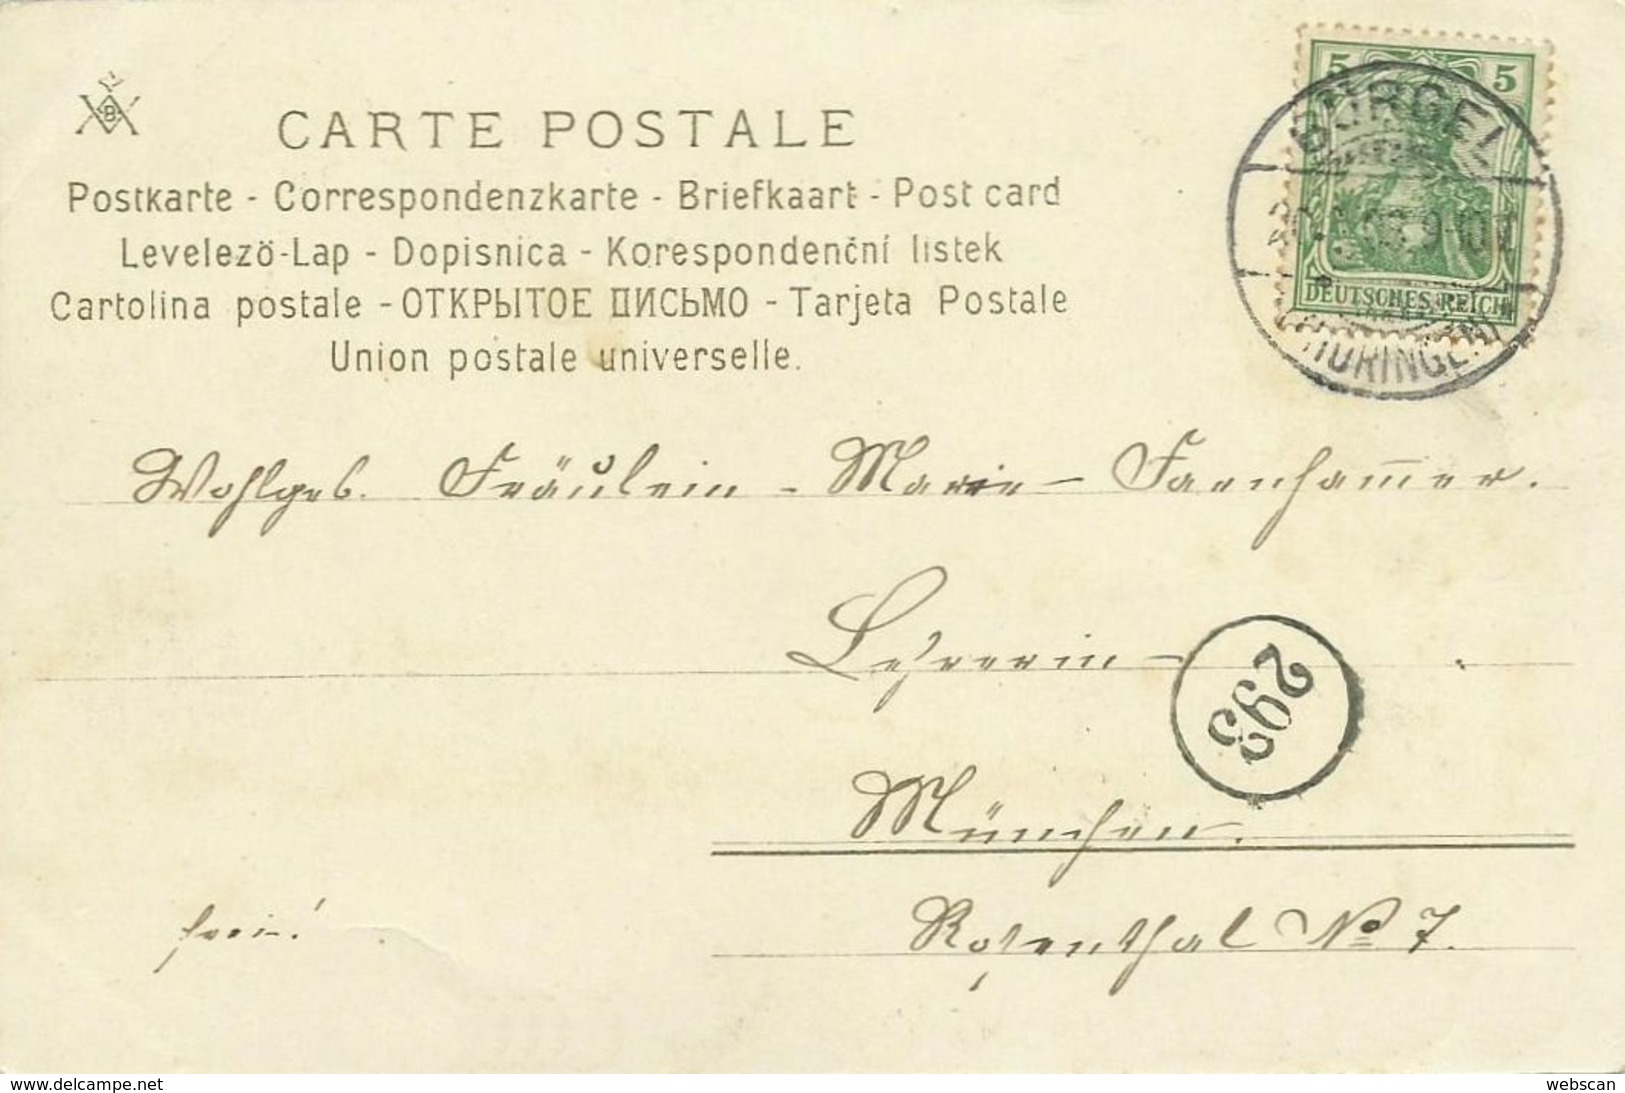 B
CARTE POSTALE
Postkarte - Correspondenzkarte - Briefkaart - Post card
Levelezö-Lap - Dopisnica - Korespondenční listek
Cartolina postale - ОТКРЫТОЕ ПИСЬМО - Tarjeta Postale
Union postale universelle.
5 5
DEUTSCHES REICH
BÜRGEL
THÜRINGEN
Wohlgeb. Fräulein - Marie - Farnham̄er.
Lehrerin -
293
München.
frei!
Rosenthal No 7.
www.delcampe.net
webscan